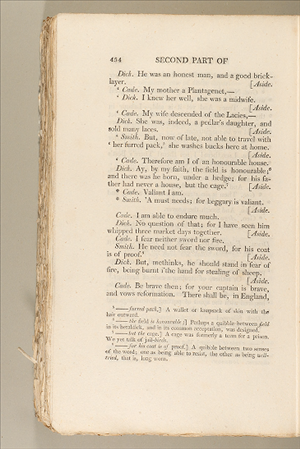 434 SECOND PART OF
Dick. He was an honest man, and a good brick-
layer. [Aside.
' Cade. My mother a Plantagenet,—
' Dick. I knew her well, she was a midwife.
[Aside.
' Cade. My wife descended of the Lacies,—
Dick. She was, indeed, a pedlar's daughter, and
sold many laces. [Aside.
' Smith. But, now of late, not able to travel with
' her furred pack, she washes bucks here at home.
[Aside.
' Cade. Therefore am I of an honourable house.
Dick. Ay, by my faith, the field is honourable;
and there was he born, under a hedge; for his fa-
ther had never a house, but the cage. [Aside.
* Cade. Valiant I am.
* Smith. 'A must needs; for beggary is valiant.
[Aside.
Cade. I am able to endure much.
Dick. No question of that; for I have seen him
whipped three market days together. [Aside.
Cade. I fear neither sword nor fire.
Smith. He need not fear the sword, for his coat
is of proof. [Aside.
Dick. But, methinks, he should stand in fear of
fire, being burnt i'the hand for stealing of sheep.
[Aside.
Cade. Be brave then; for your captain is brave,
and vows reformation. There shall be, in England,
—— furred pack,] A wallet or knapsack of skin with the
hair outward.
—— the field is honourable;] Perhaps a quibble between field
in its heraldick, and in its common acceptation, was designed.
—— but the cage.] A cage was formerly a term for a prison.
We yet talk of jail-birds.
—— for his coat is of proof.] A quibble between two senses
of the word; one as being able to resist, the other as being well-
tried, that is, long worn.